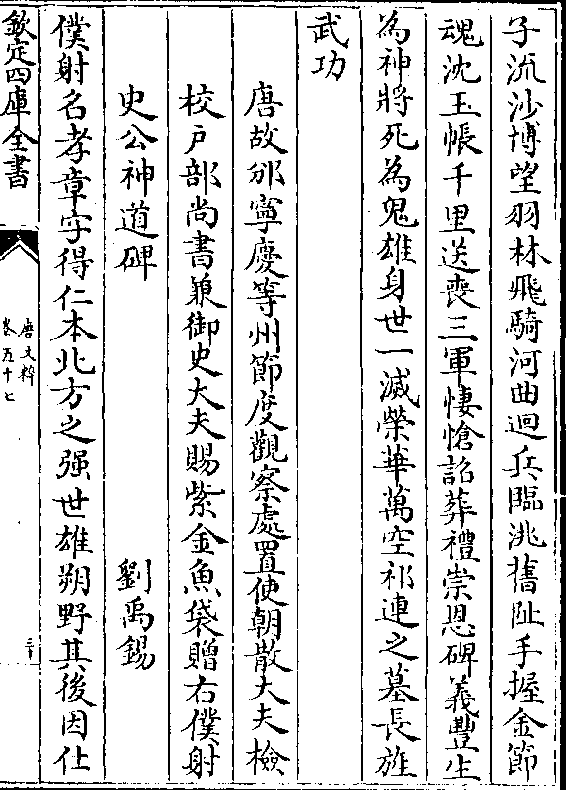 子流沙博望羽林飛騎河曲迴兵臨洮舊阯手握金節
魂沈玉帳千里送喪三軍悽愴詔葬禮崇恩碑義豐生
為神將死為鬼雄身世一滅榮華萬空祁連之墓長旌
武功
唐故邠寧慶等州節度觀察處置使朝散大夫檢
校户部尚書兼御史大夫賜紫金魚袋贈右僕射
史公神道碑 劉禹錫
僕射名孝章字得仁本北方之强世雄朔野其後因仕
欽定四庫全書
唐文粹
卷五十七
三十